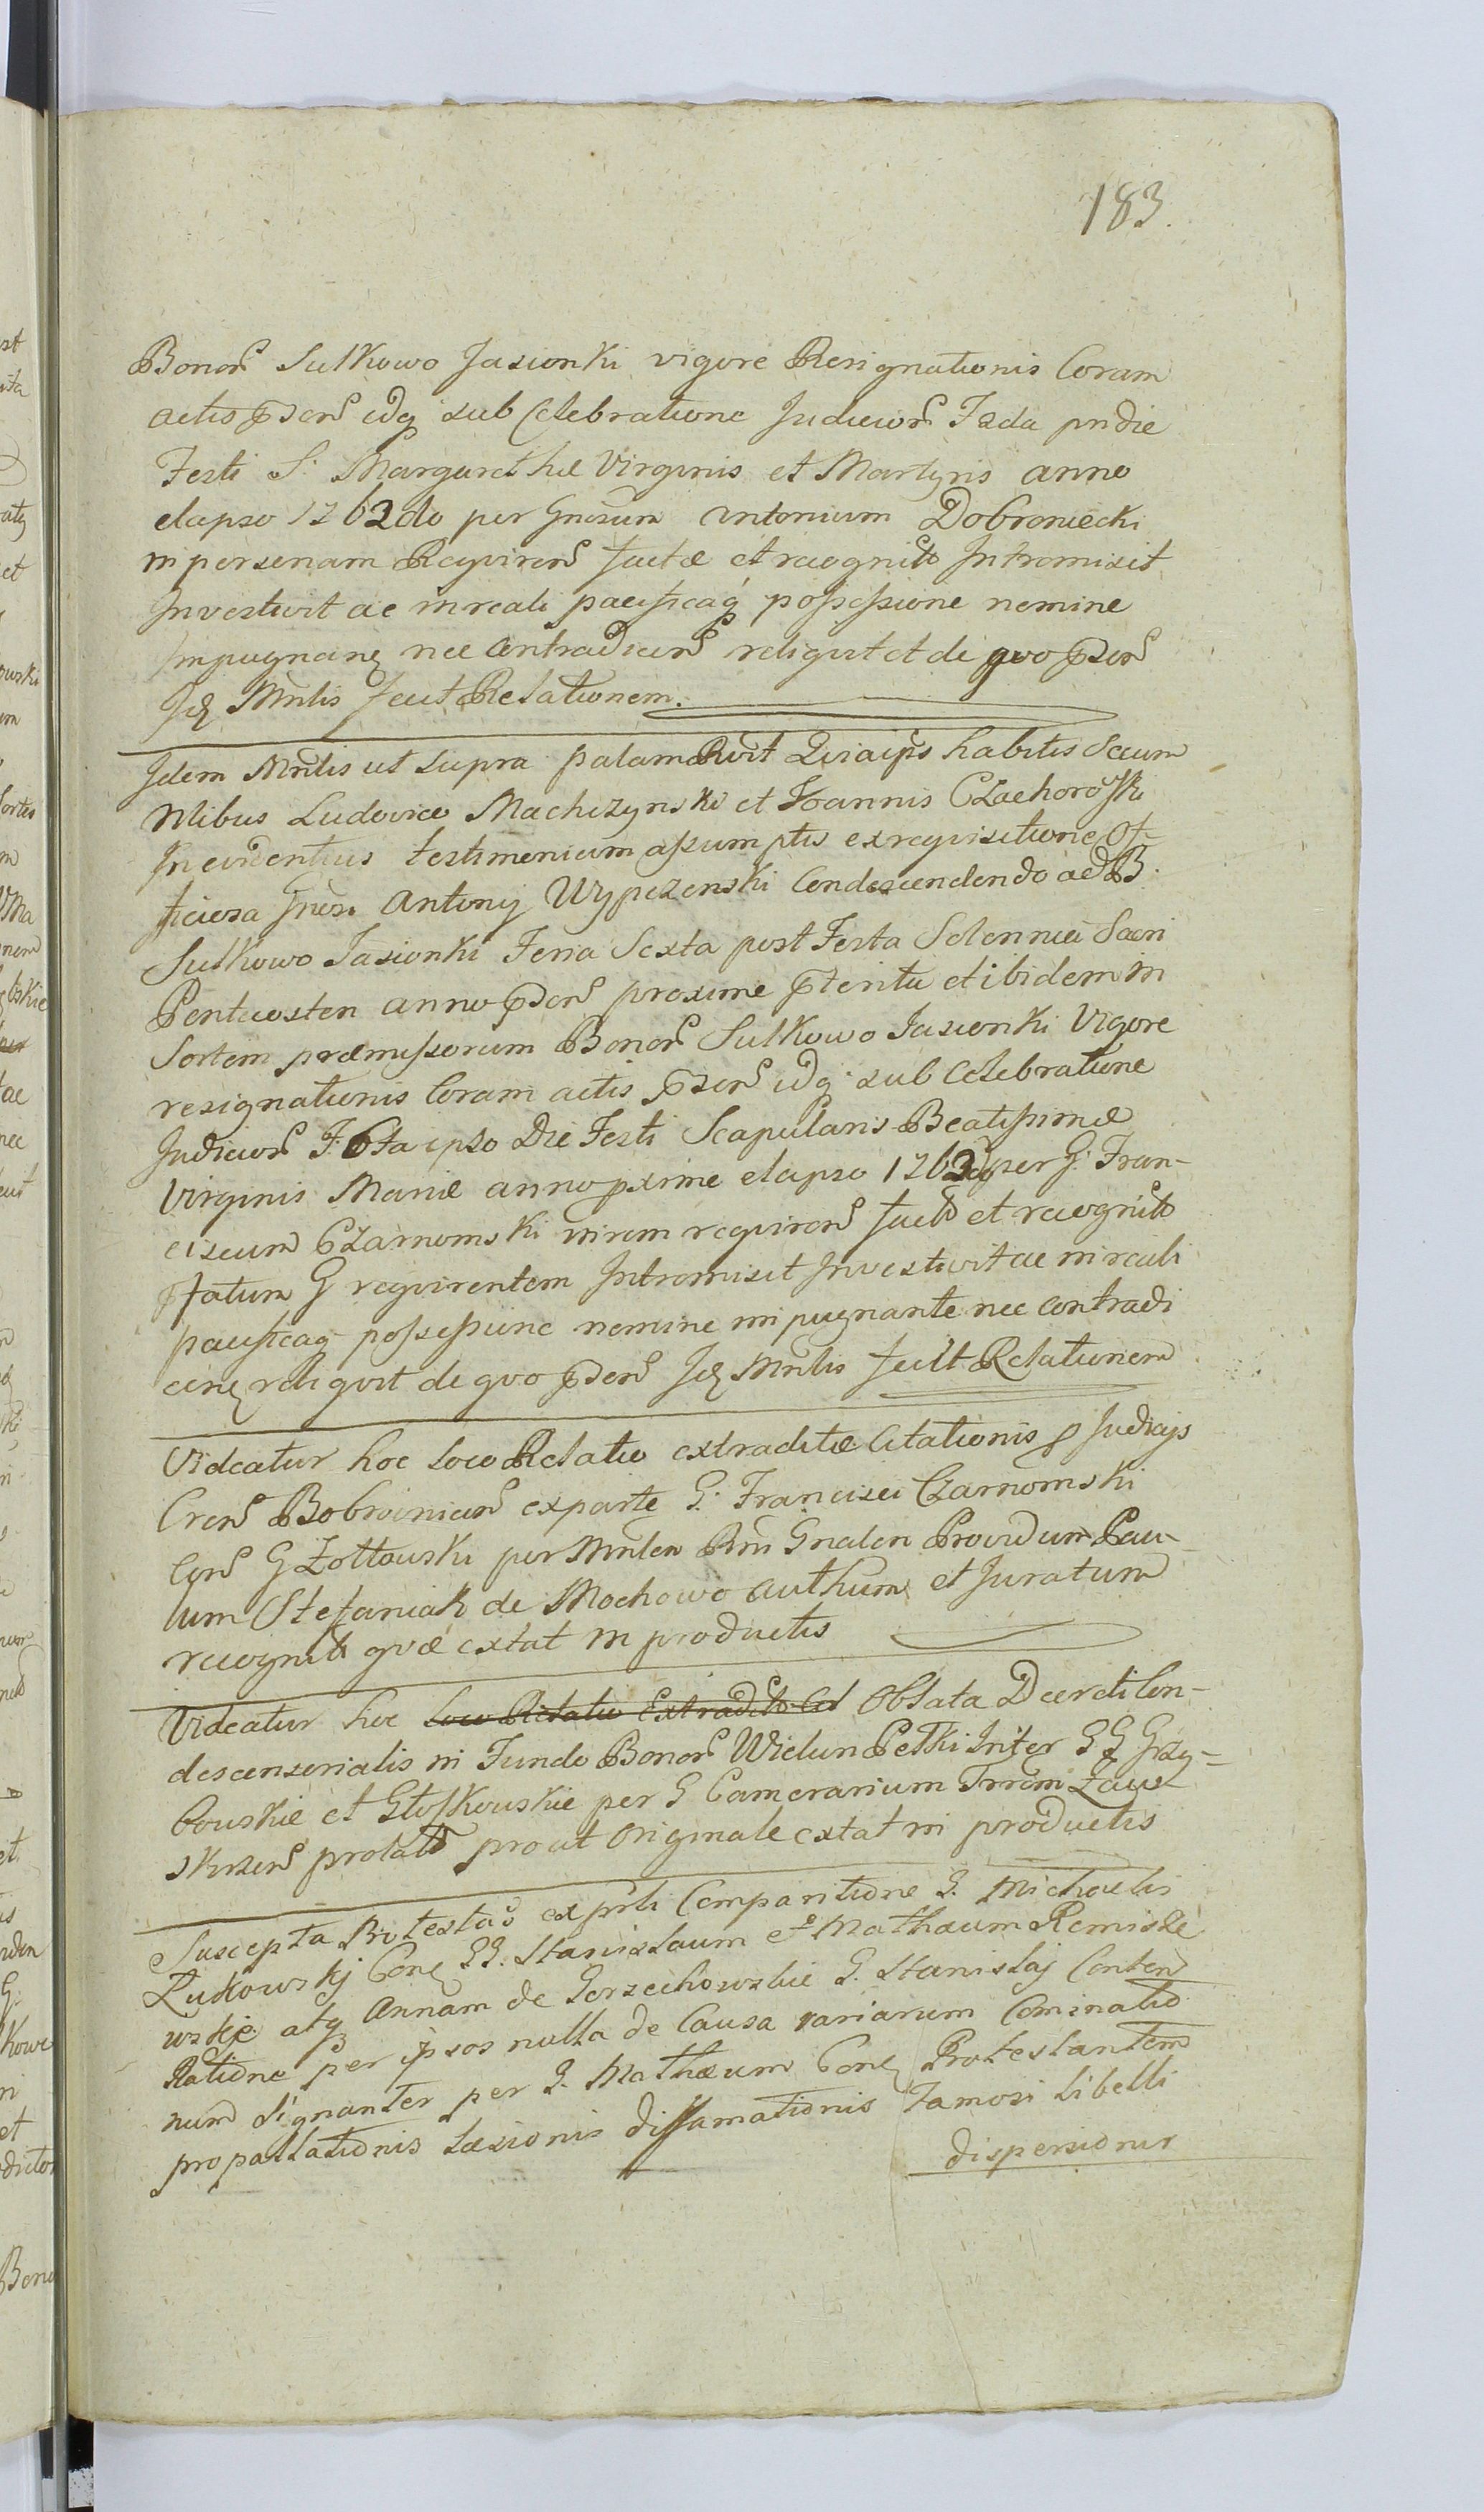 183.
Bonor Sulkowo Jasionki vigore Resignationis Coram
actis pnbr idq sub Celebratione Judicior F 2da pridie
Festi S. Margarethæ Virginis et Martyris anno
elapso 1762do per Gnosum Antonium Dobroniecki
in personam Reqviren factæ et recognit Intromisit
Investivit ac in reali pacificaq possessione nemine
impugnan nec Contradicen reliqvit et de qvo
Id Mnlis fecit Relationem.
Idem Mnlis ut supra palam Rvit Qviaips habitis Secum
Nlibus Ludovico Machczynski et Joannis Czachorowski
In evidentius testimonium assumptis ex reqvisitione Of-
ficiosa Gnosi Antonij Wypczenski Condescendendo ad B.
Sulkowo Jasionki Feria Sexta post Festa Solennia Sacri
Pentecosten anno proxime pterita et ibidem in
Sortem præmissorum Bonor Sulkowo Jasionki Vigore
resignationis Coram actis idq sub Celebratione
Judicior F. 6ta ipso Die Festi Scapularis Beatissimæ
Virginis Mariæ anno pxime elapso 1762do per G. Fran-
ciscum Czarnomski in rem reqviren fact et recognit
pfatum G reqvirentem Intromisit Investivit ac in reali
pacificaq possessione nemine impugnante nec contradi
cen reliqvit de qvo Id Mnlis fecit Relationem
Videatur hoc loco Relatio extraditæ Citationis p Judicijs
Cren Bobrovnicen ex parte G. Francisci Czarnomski
Con G Zołtowski per Mnlen Rni Gnalen Providum Pau-
lum Stefaniak de Mochowo authum et Juratum
recognit qvæ extat in productis
Videatur hoc loco Relatio Extradit Cit Oblata Decreti Con-
descensorialis in Fundo Bonor Wielun Petki Inter GG Grzy-
bowskie et Głoskowskie per G Camerarium Trrem Zaws-
skrzen prolat pro ut Originale extat in productis
Suscepta Protestao ex pnli Comparitione G. Michaelis
Łukowskj Con GG. Stanislaum et Mathæum Remisze
wskje atq Annam de Gorzechowskie G. Stanislaj Conten
Ratione per ipsos nulla de Causa variarum Cominatio
num signanter per G. Mathæum Con Protestantem
propallationis læsionis diffamationis Famosi libelli
dispersionis